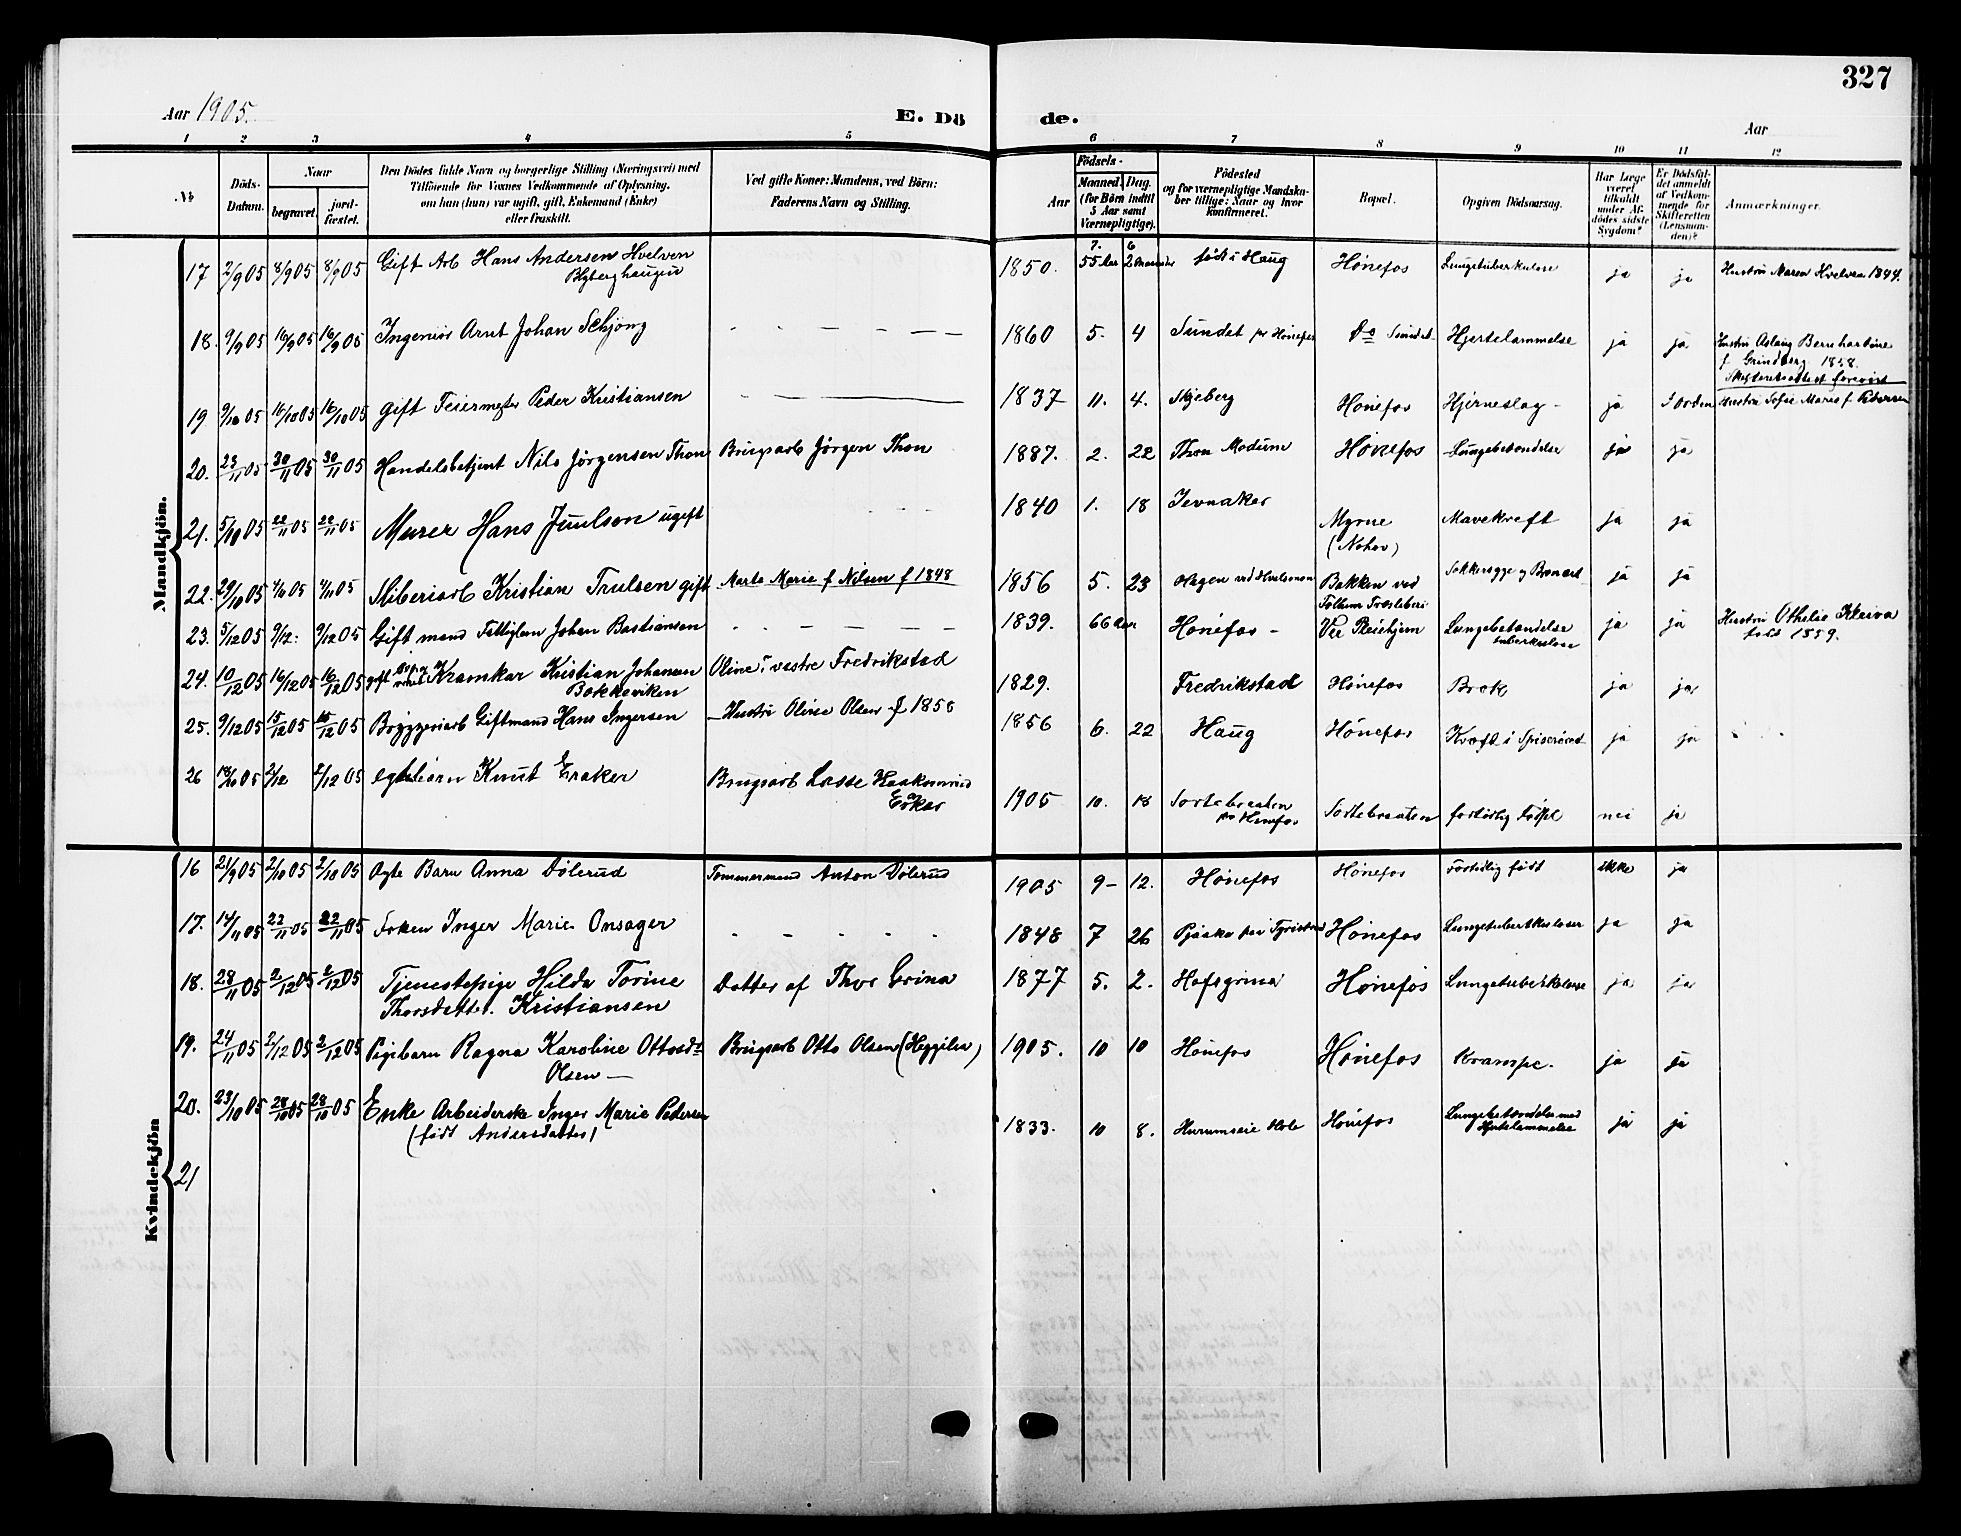 327
Aar 1905.
E. Dö
de.
Aar
1 2 3 4 5 6 7 8 9 10 11 12
№
Döds-
Datum.
Naar
begravet.
jord-
fæstet.
Den Dödes fulde Navn og borgerlige Stilling (Næringsvei) med
Tilföiende for Voxnes Vedkommende af Oplysning,
om han (hun) var ugift, gift, Enkemand (Enke)
eller fraskilt.
Ved gifte Koner: Mandens, ved Börn:
Faderens Navn og Stilling.
Födsels-
Aar
Maaned.
Dag.
(for Børn indtil
5 Aar samt
Værnepligtige).
Födested
og for værnepligtige Mandska-
ber tillige: Naar og hvor
konfirmeret.
Bopæl.
Opgiven Dödsaarsag.
Har Læge
været
tilkaldt
under Af-
dödes sidste
Sygdom?
Er Dödsfal-
det anmeldt
af Vedkom-
mende for
Skifteretten
(Lensman-
den)?
Anmærkninger.
Mandkjön.
17 2/9 05 8/9 05 8/9 05 Gift Arb Hans Andersen Hvelven 1850. 7. 6 født i Haug Hønefos Lungetuberkulose ja ja Hustru Maren Hvelven 1844.
55 Aar 2 Maaneder
18. 9/9 05 16/9 05 16/9 05 Ingeniör Arnt Johan Schjöng - - - - 1860 5. 4 Sundet pr Hönefos Do Sundet Hjertelammelse ja ja Hustru Aslaug Bernhardine
f Grindberg 1858.
19 9/10 05 16/10 05 16/10 05 gift Feiermester Peder Kristiansen 1837 11. 4. Skjeberg Hønefos Hjerneslag - ja I orden Hustru Sofie Marie f Petersen
20. 23/11 05 30/11 05 30/11 05 Handelsbetjent Nils Jørgensen Thon Brugsarb Jørgen Thon 1887. 2. 22 Thon Modum Hönefos Lungebetændelse ja ja
21. 5/10 05 22/11 05 22/11 05 Murer Hans Juulson ugift 1840 1. 18 Jevnaker Myrne Mavekreft ja ja
22. 29/10 05 4/11 05 4/11 05 Sliberiarb Kristian Trulsen gift Marte Marie f Nilsen f 1848 1856 5. 23 Hagen ved Bakken ved Sukkersyge ja ja
Follum Træsliberi
23. 5/12 05 9/12. 9/12 05 Gift mand Fattiglem Johan Bastiansen - - - - 1839. 66 Aar Hønefos - Lungebetændelse ja ja Hustru Othelie Kleiva
tuberkulose født 1859.
24. 10/12 05 16/12 05 16/12 05 gift Kramkar Kristian Johansen Oline vestre Fredrikstad 1829. Fredrikstad Hønefos Brok ja ja
25. 9/12 05 15/12 05 15/12 05 Bryggeriarb Giftmand Hans Ingersen Hustru Oline Olsen f 1858 1856 6. 22 Haug Hönefos Kræft i Spiserøret ja ja
26 18/10 05 2/12 2/12 05 Knut Eraker Brugsarb Lasse 1905 10. 18 Sortebraaten Sortebraaten fortidlig Fødsel nei ja
pr Hönefos
Kvindekjön
16 21/9 05 2/10 05 2/10 05 Ægte Barn Anna Dölerud Tømmermand Anton Dölerud 1905 9- 12. Hønefos Hönefos Fortidlig født ikke ja
17. 14/11 05 22/11 05 22/11 05 Frøken Inger Marie Onsager - - - - 1848 7 26 Hönefos Lungetuberkuloser ja ja
18. 28/11 05 2/12 05 2/12 05 Tjenestepige Hilda Torine Datter af Thor 1877 5. 2. Hönefos Lungetuberkulose ja ja
Thorsdatter. Kristiansen
19. 24/11 05 2/12 05 2/12 05 Pigebarn Ragna Karoline Ottosdt Brugsarb Otto Olsen 1905. 10 10 Hönefos Hönefos Krampe. ja ja
Olsen -
20. 23/10 05 28/10 05 28/10 05 Enke Arbeiderske Inger Marie Pedersen 1833. 10 8. Hole Hönefos Lungebetændelse med ja ja
(født Andersdatter) Hjertelammelse
21